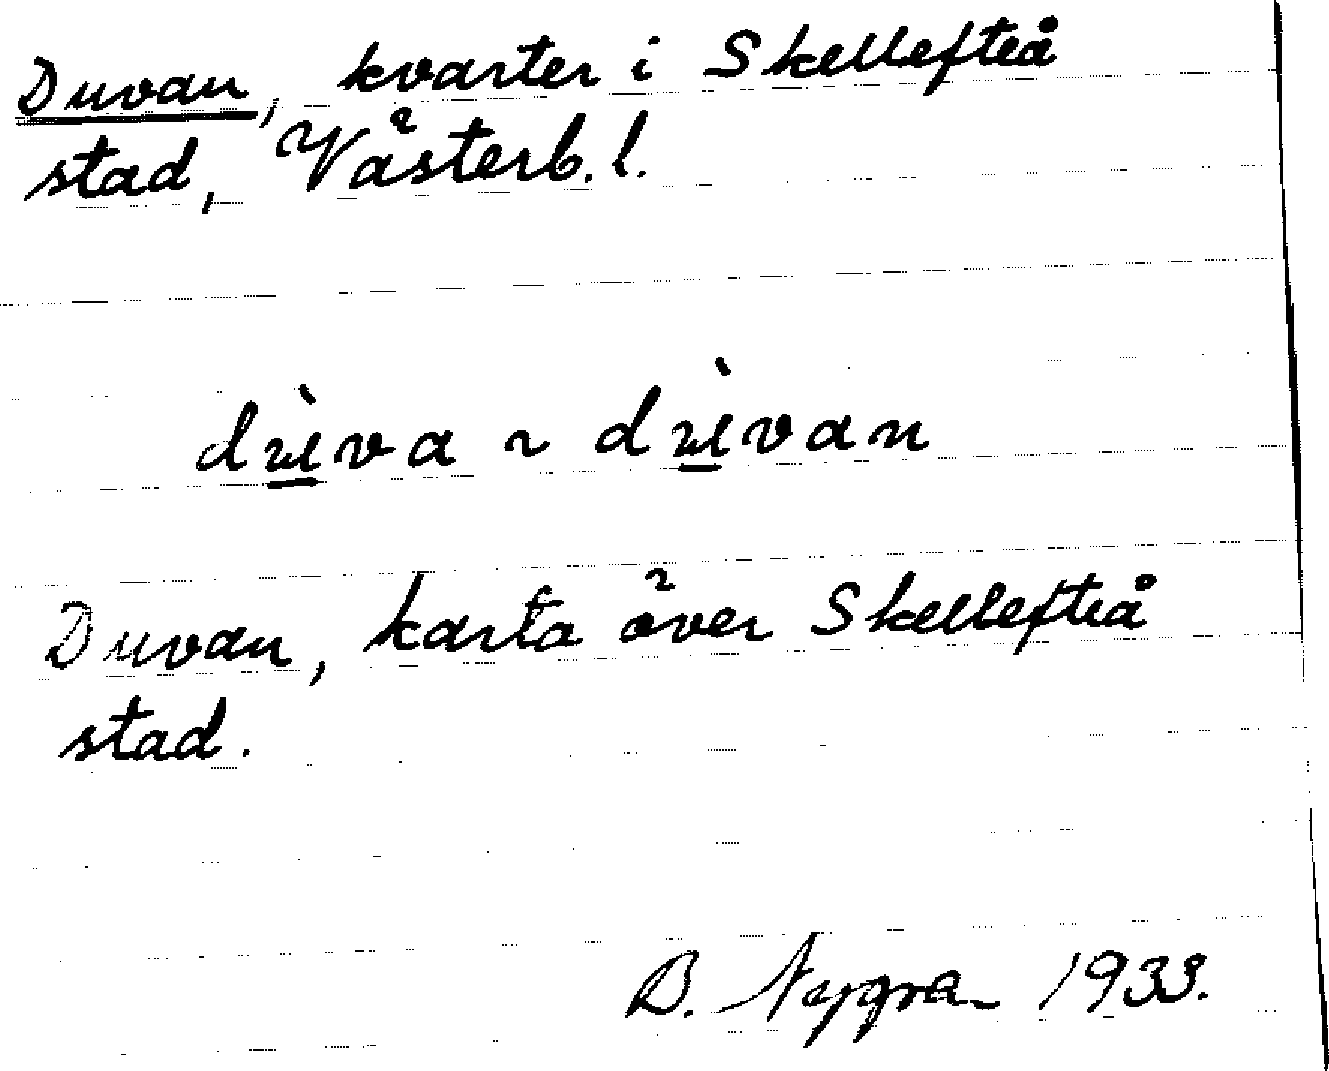 Duvan, kvarter i Skellefteå
stad, Västerb. l.
dùva ~ dùvan
Duvan, karta över Skellefteå
stad.
B. Nygra 1933.